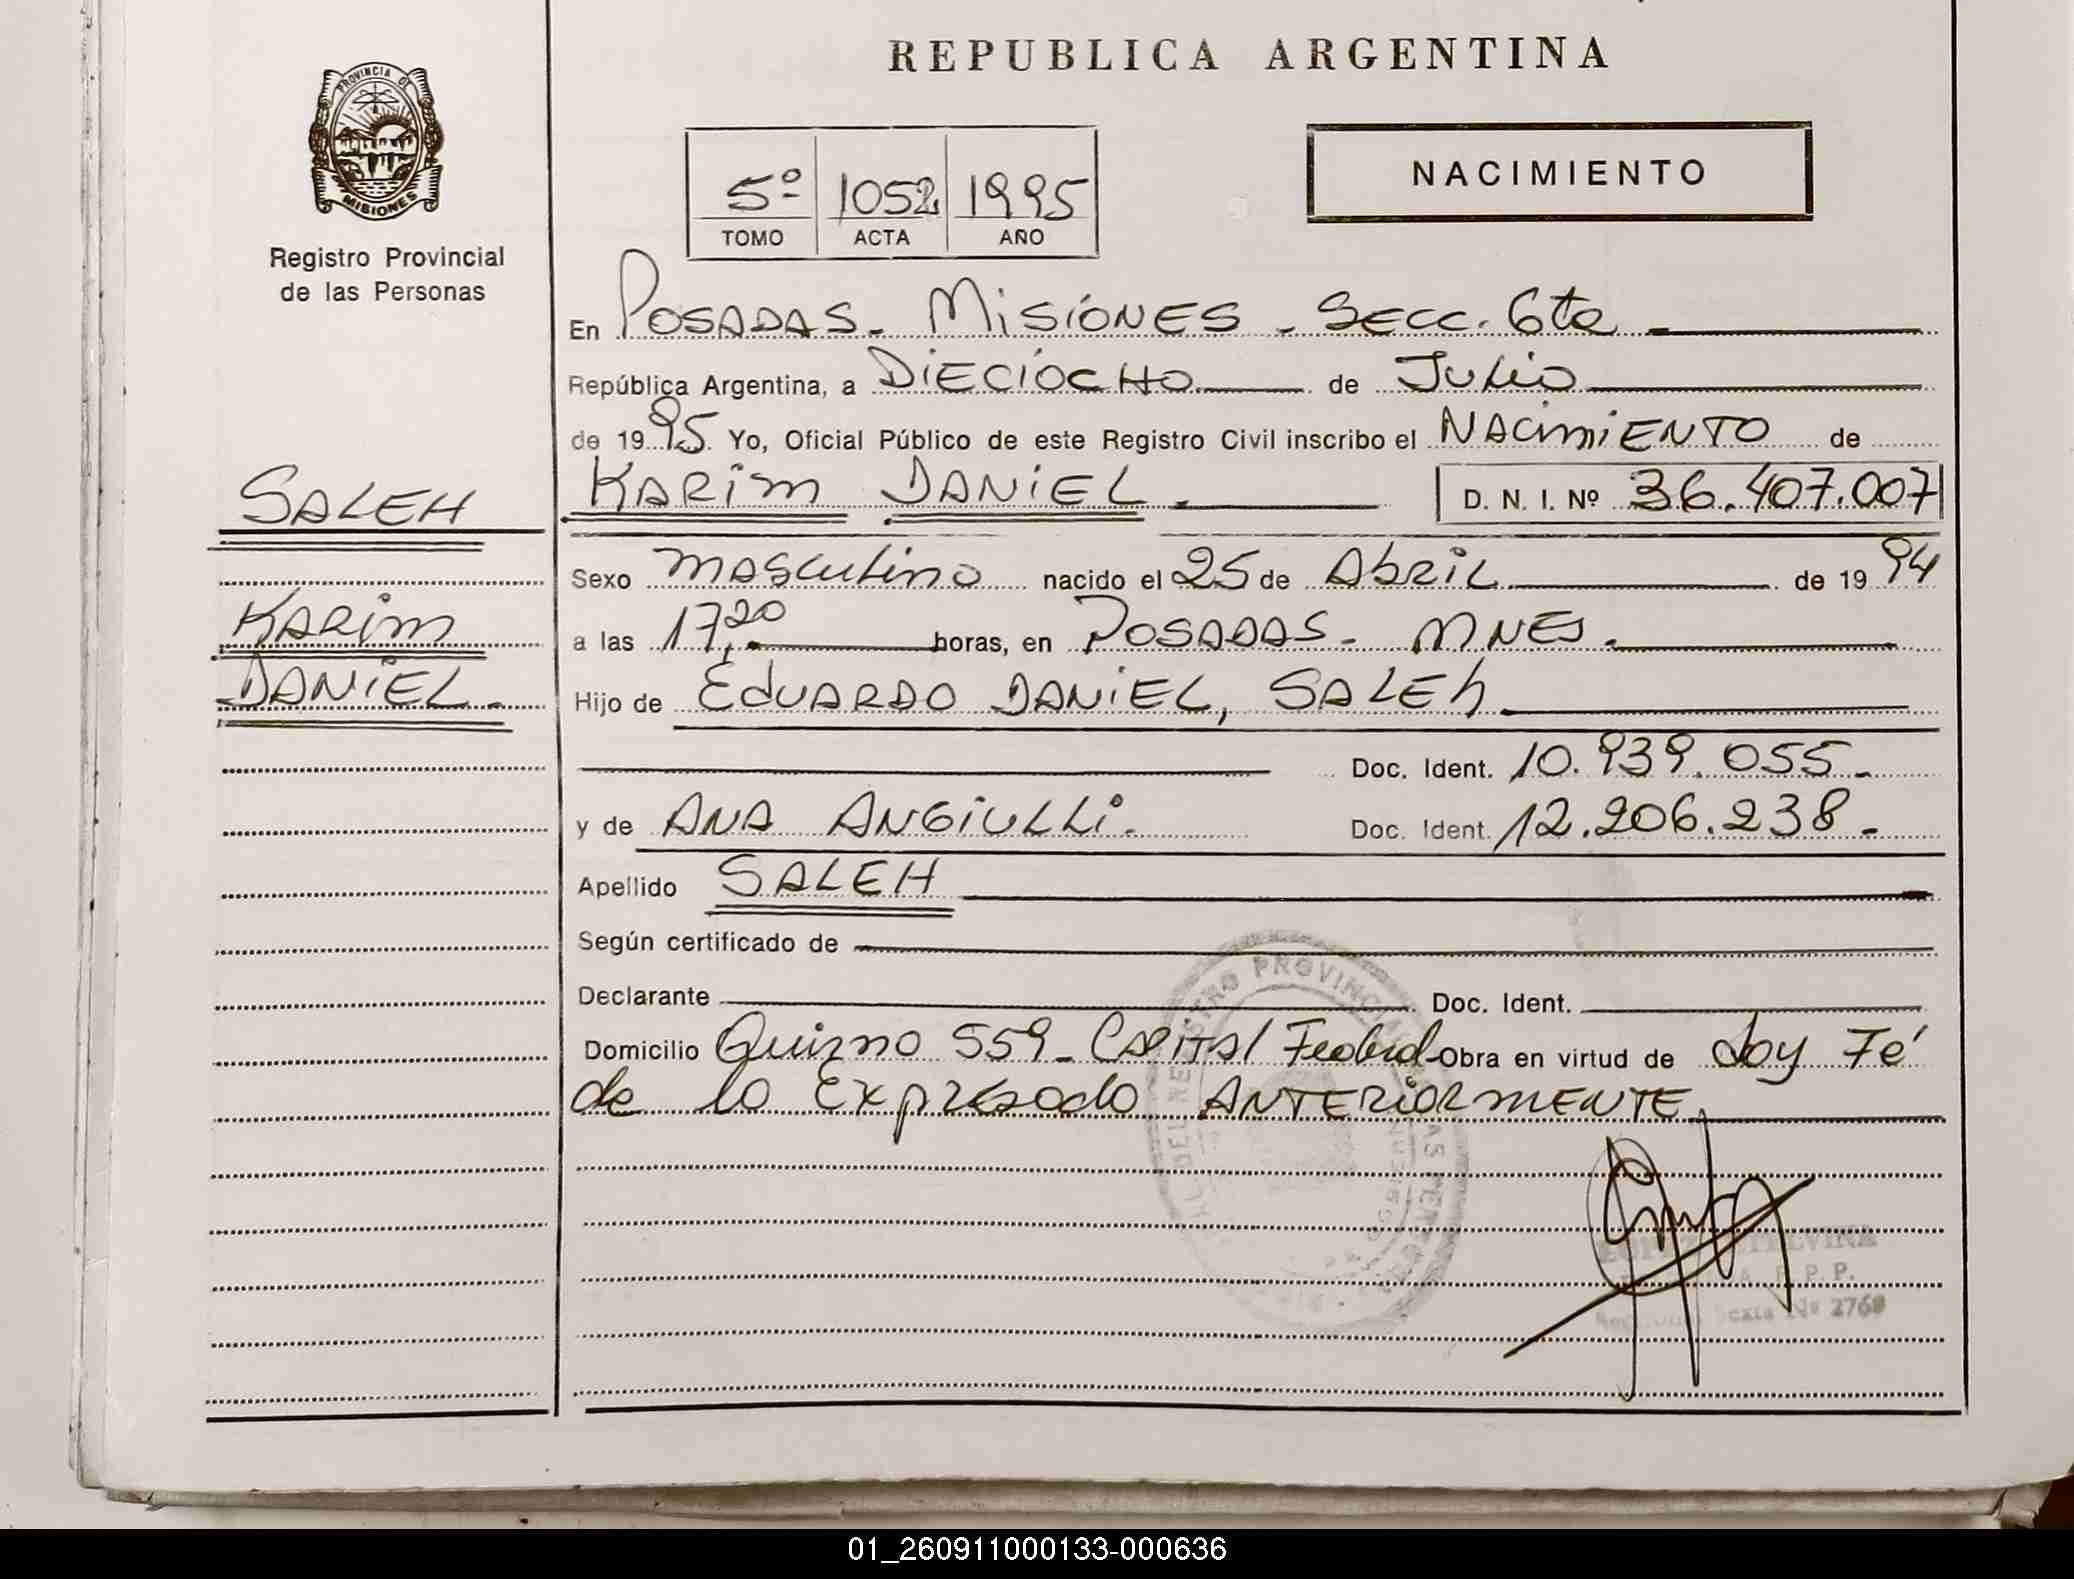 REPUBLICA ARGENTINA
PROVINCIA DE
MISIONES
Registro Provincial
de las Personas
5º 1052 1995
TOMO ACTA AÑO
NACIMIENTO
En POSADAS - MISIONES - SECC. 6ta -
República Argentina, a DIECIOCHO de JULIO
de 1995 Yo, Oficial Público de este Registro Civil inscribo el NACIMIENTO de
SALEH
KARIM DANIEL - D. N. I. Nº 36.407.007
Sexo masculino nacido el 25 de Abril de 1994
KARIM
a las 17,20 horas, en POSADAS - MNES.
DANIEL -
Hijo de EDUARDO DANIEL, SALEh
Doc. Ident. 10.939.055 -
y de ANA ANGIULLI. Doc. Ident. 12.206.238 -
Apellido SALEH
Según certificado de
Declarante Doc. Ident.
Domicilio Quirno 559 - CAPITAL Federal - Obra en virtud de doy Fé
de lo Expresado ANTERIORMENTE
REGISTRO PROVINCIAL
ETELVINA
P. P.
Nº 2760
01_260911000133-000636